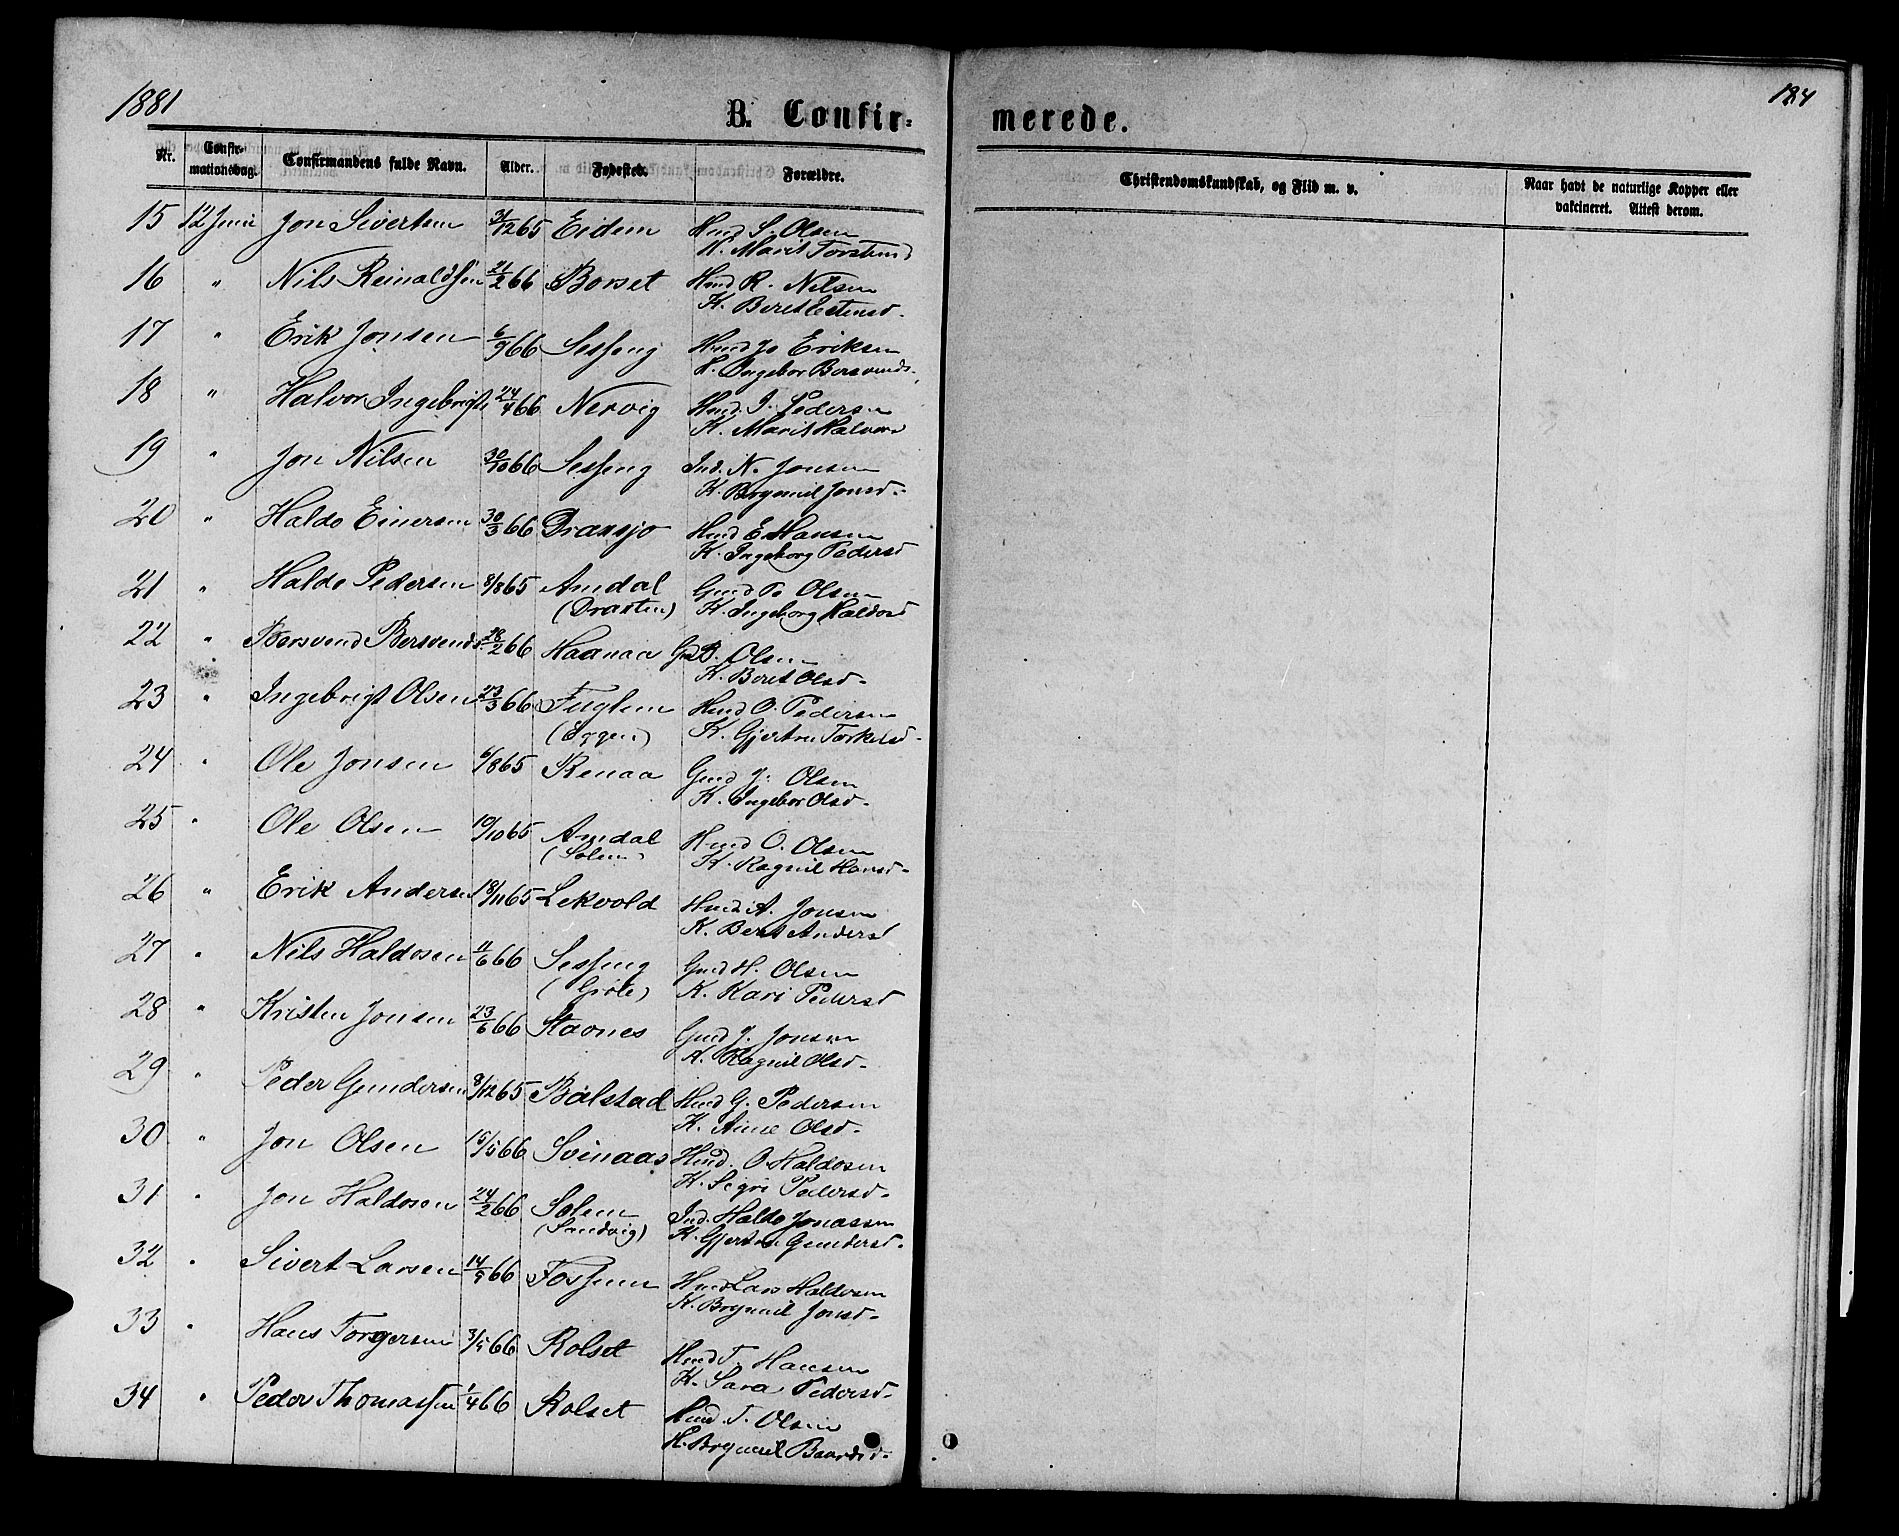 1881
184
B. Confir-
merede.
Nr. Confir-mationsdag. Confirmandens fulde Navn. Alder. Fødested. Forældre. Christendomskundskab, og Flid m. v. Naar havt de naturlige Kopper eller vakcineret. Attest derom.
15 12 Juni Jon Sivertsen 31/12 65 Eidem Hmd S. Olsen
K. Marit Torstensd
16 " Nils Reinaldsen 21/2 66 Borset Hmd R. Nilsen
K. Beret Estensd.
17 " Erik Jonsen 6/9 66 Sesseng Hmd Jo Eriksen
K. Ingebor Bersvends.
18 " Halvor Ingebrigts 24/4 66 Nervig Hmd. I. Pedersen
K. Marit Halvors
19 " Jon Nilsen 30/10 66 Sesseng Ind. N. Jonsen
K. Brynnil Jonsd.
20 " Haldo Einersen 30/3 66 Dransjo Hmd E Hansen
K. Ingeborg Pedersd
21 " Haldo Pedersen 8/8 65 Amdal Gmd Pe Olsen
(Draxten) K. Ingeborg Haldosd
22 " Bersvend Bersvends. 28/2 66 Haanaa Gm B. Olsen
K. Beret Olsd.
23 " Ingebrigt Olsen 23/3 66 Fuglem Hmd O. Pedersen
(Eggen) K. Gjertru Torkelsd.
24 " Ole Jonsen 6/8 65 Renaa Gmd J. Olsen
K. Ingebor Olsd.
25 " Ole Olsen 10/10 65 Amdal Hmd O. Olsen
(Solem) K. Ragnil Hansd.
26 " Erik Andersen 18/11 65 Lekvold Hmd A. Jonsen
K. Beret Andersd
27 " Nils Haldosen 11/6 66 Sesseng Gmd H. Olsen
K. Kari Pedersd
28 " Kristen Jonsen 23/6 66 Stavnes Gmd J. Jonsen
K. Ragnil Olsd.
29 " Peder Gundersen 8/12 65 Bolstad Hmd G. Pedersen
K. Anne Olsd.
30 " Jon Olsen 15/5 66 Svinaas Hmd. O Haldosen
K. Sigri Pedersd.
31 " Jon Haldosen 24/2 66 Solem Ind. Haldo Jonassen
(Sandvig) K. Gjertru Gundersd.
32 " Sivert Larsen 14/9 66 Fossum Hmd Lars Haldosen
K. Brynnil Jonsd.
33 " Hans Torgersen 3/5 66 Rolset Hmd T. Hansen
K. Sara Pedersd.
34 " Peder Thomassen 1/4 66 Rolset Hmd. T. Olsen
K. Brynnil Baardsd.